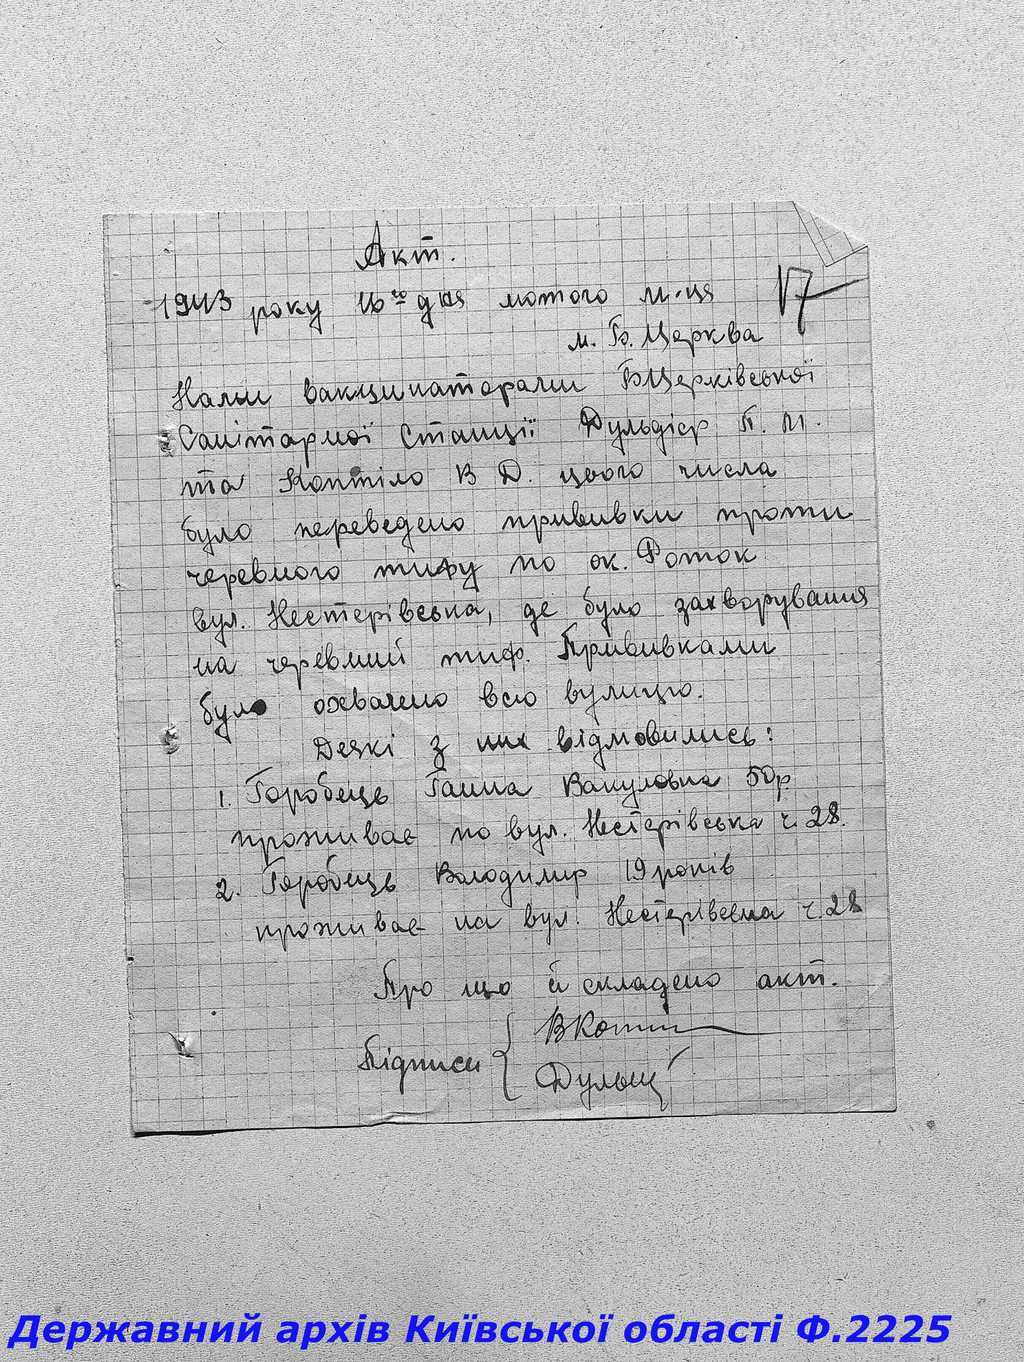 Акт.
1943 року 16го дня лютого м-ця
17
м. Б. Церква
Нами вакцинаторами БЦерківської
Санітарної Станції П. М.
та Коптіло В Д. цього числа
було переведено прививки проти
черевного тифу по ок. Роток
вул. Нестерівська, де було захворування
на черевний тиф. Прививками
було охвачено всю вулицю.
Деякі з них відмовились:
1. Горобець Ганна Вакуловна 50р
проживає по вул. Нестерівська ч. 28.
2. Горобець Володимир 19 років
проживає на вул. Нестерівська ч. 28
Про що й складено акт.
Підписи
Державний архів Київської області Ф.2225